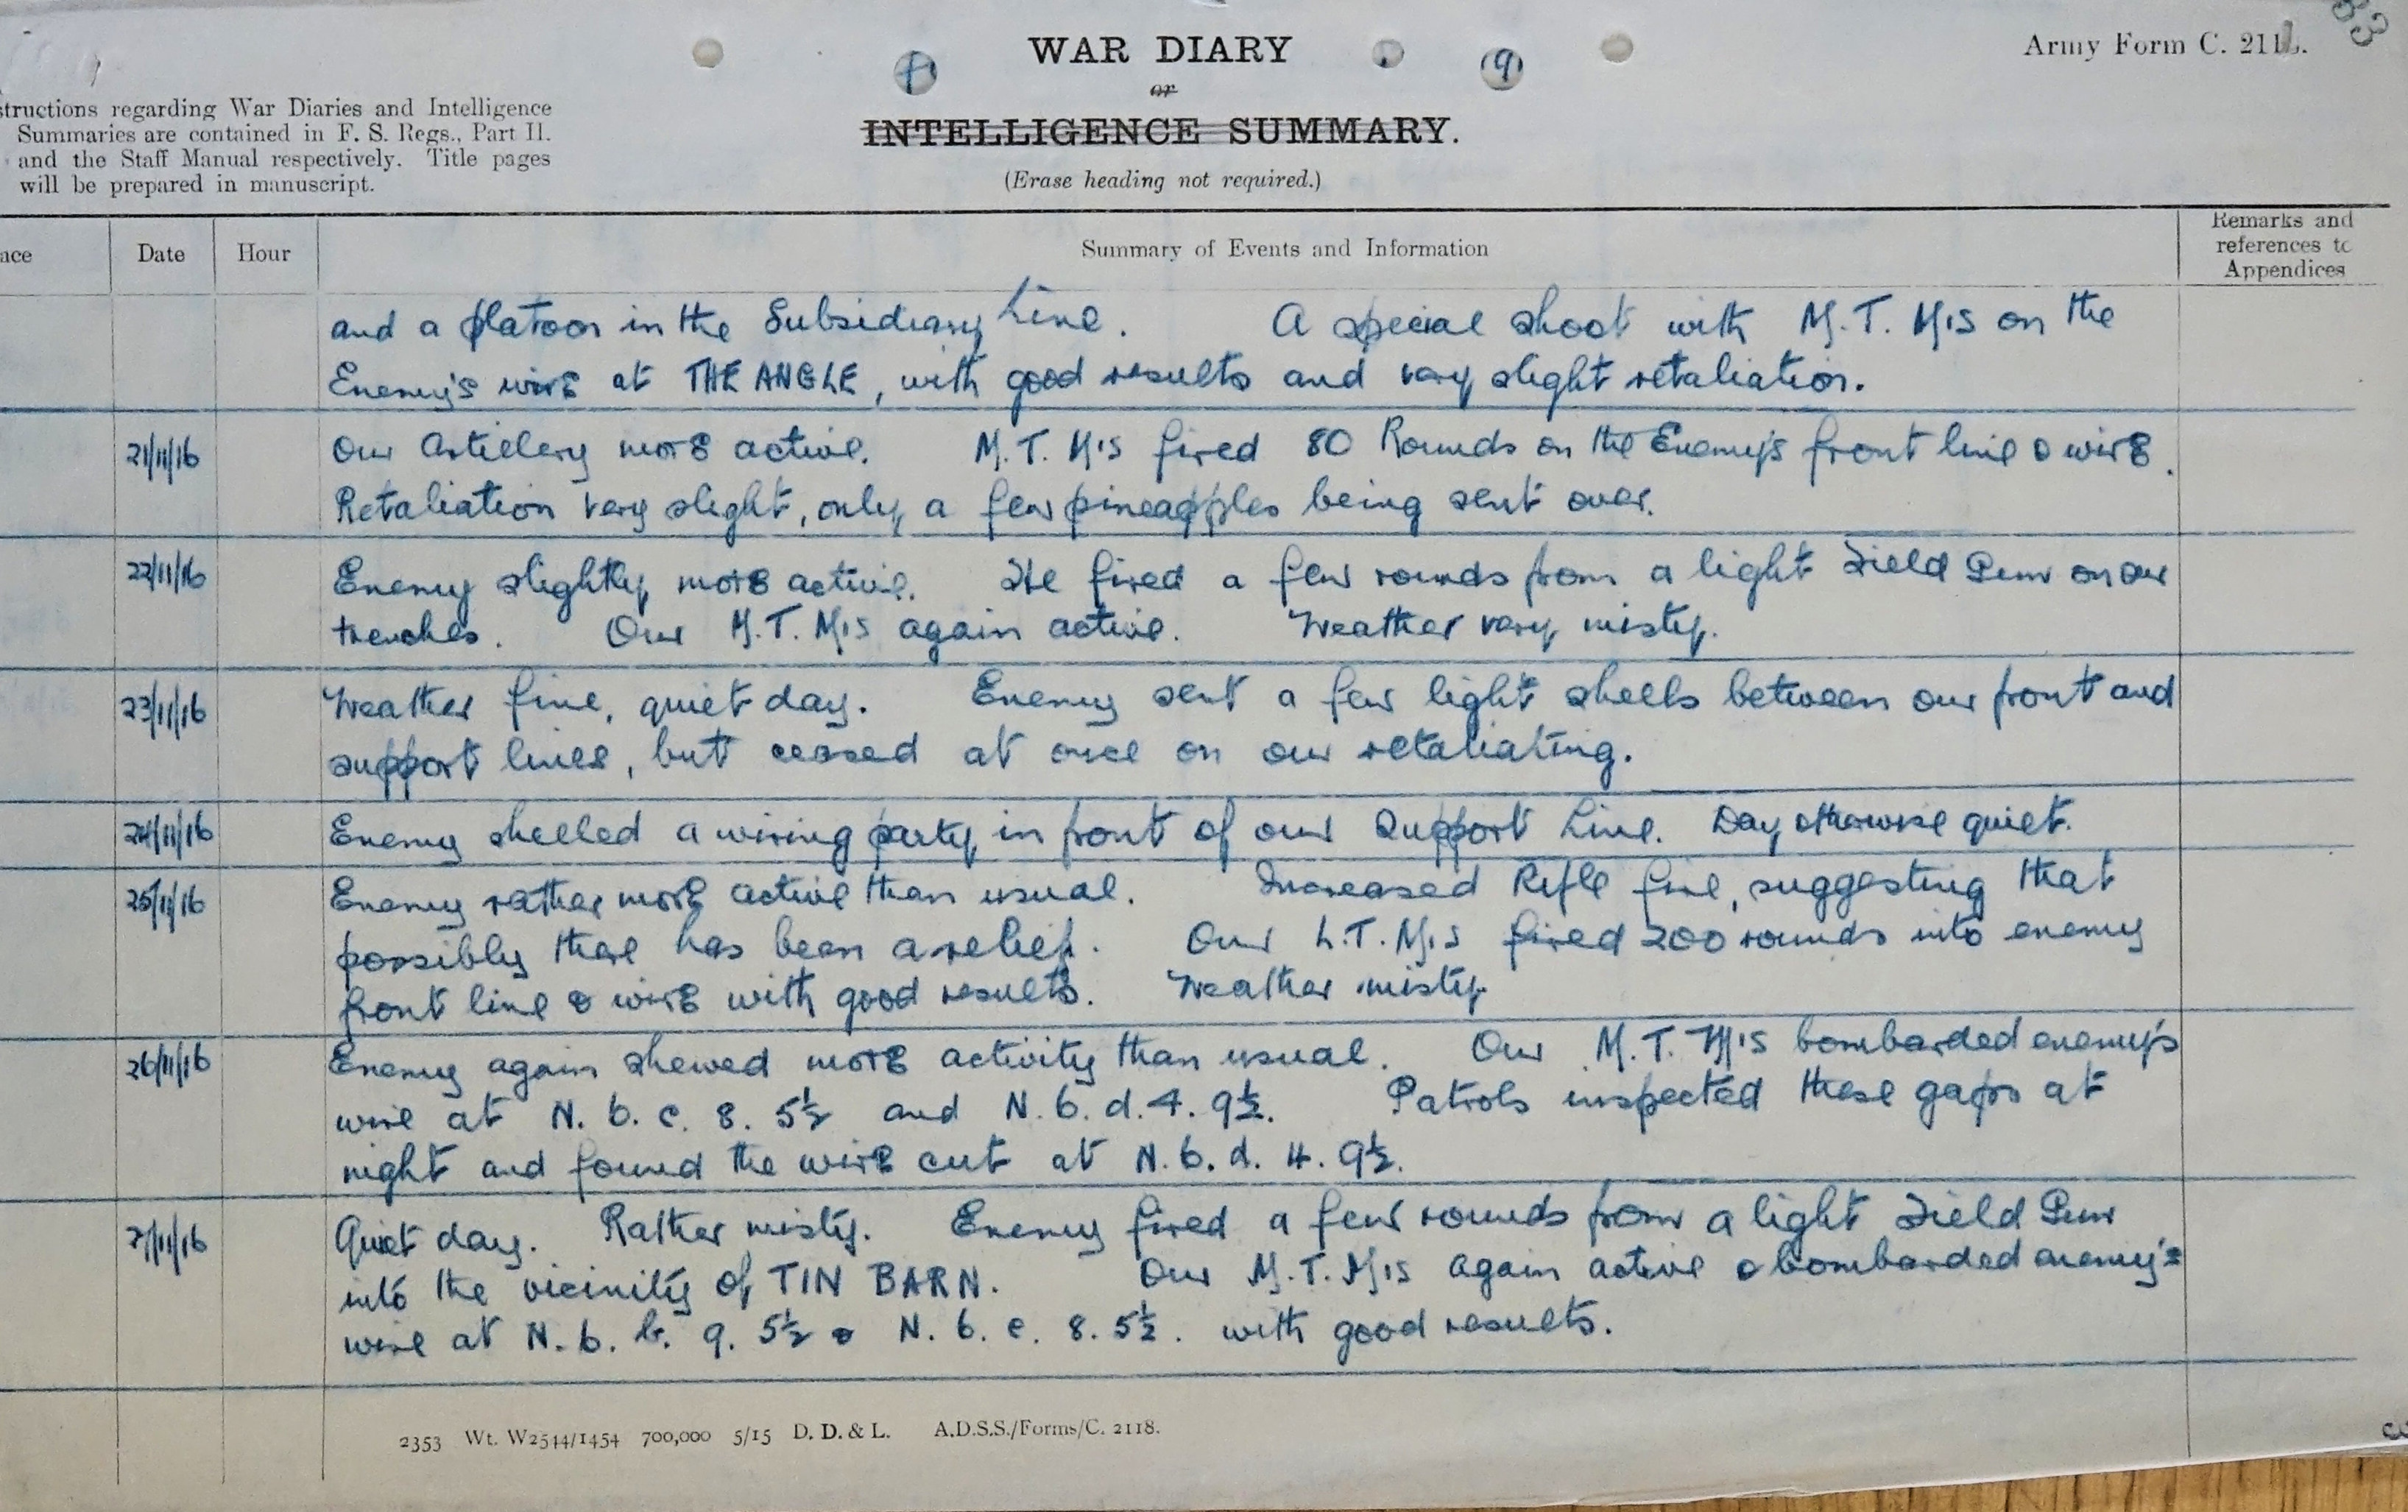 WAR DIARY
or
INTELLIGENCE SUMMARY.
(Erase heading not required.)
Army Form C. 211
83
(9)
structions regarding War Diaries and Intelligence
Summaries are contained in F. S. Regs., Part II.
and the Staff Manual respectively. Title pages
will be prepared in manuscript.
ace
Date
Hour
Summary of Events and Information
Remarks and
references to
Appendices
and a platoon in the Subsidiary Line. A special shoot with M.T.M's on the
Enemy's wire at THE ANGLE, with good results and very slight retaliation.
21/11/16 Our Artillery more active. M.T.M's fired 80 Rounds on the Enemy's front line & wire.
Retaliation very slight, only a few pineapples being sent over.
22/11/16 Enemy slightly more active. He fired a few rounds from a light Field Gun on our
trenches. Our M.T.M's again active. Weather very misty.
23/11/16 Weather fine, quiet day. Enemy sent a few light shells between our front and
support lines, but ceased at once on our retaliating.
24/11/16 Enemy shelled a wiring party in front of our Support Line. Day otherwise quiet.
25/11/16 Enemy rather more active than usual. Increased Rifle fire, suggesting that
possibly there has been a relief. Our L.T.M's fired 200 rounds into enemy
front line & wire with good results. Weather misty
26/11/16 Enemy again shewed more activity than usual. Our M.T.M's bombarded enemy's
wire at N. 6. c. 8. 5½ and N. 6. d. 4. 9½. Patrols inspected these gaps at
night and found the wire cut at N. 6. d. 4. 9½.
7/11/16 Quiet day. Rather misty. Enemy fired a few rounds from a light Field Gun
into the vicinity of TIN BARN. Our M.T.M's again active & bombarded enemy's
wire at N. 6. b. 9. 5½ & N. 6. c. 8. 5½. with good results.
2353 Wt. W2544/1454 700,000 5/15 D. D. & L. A.D.S.S./Forms/C. 2118.